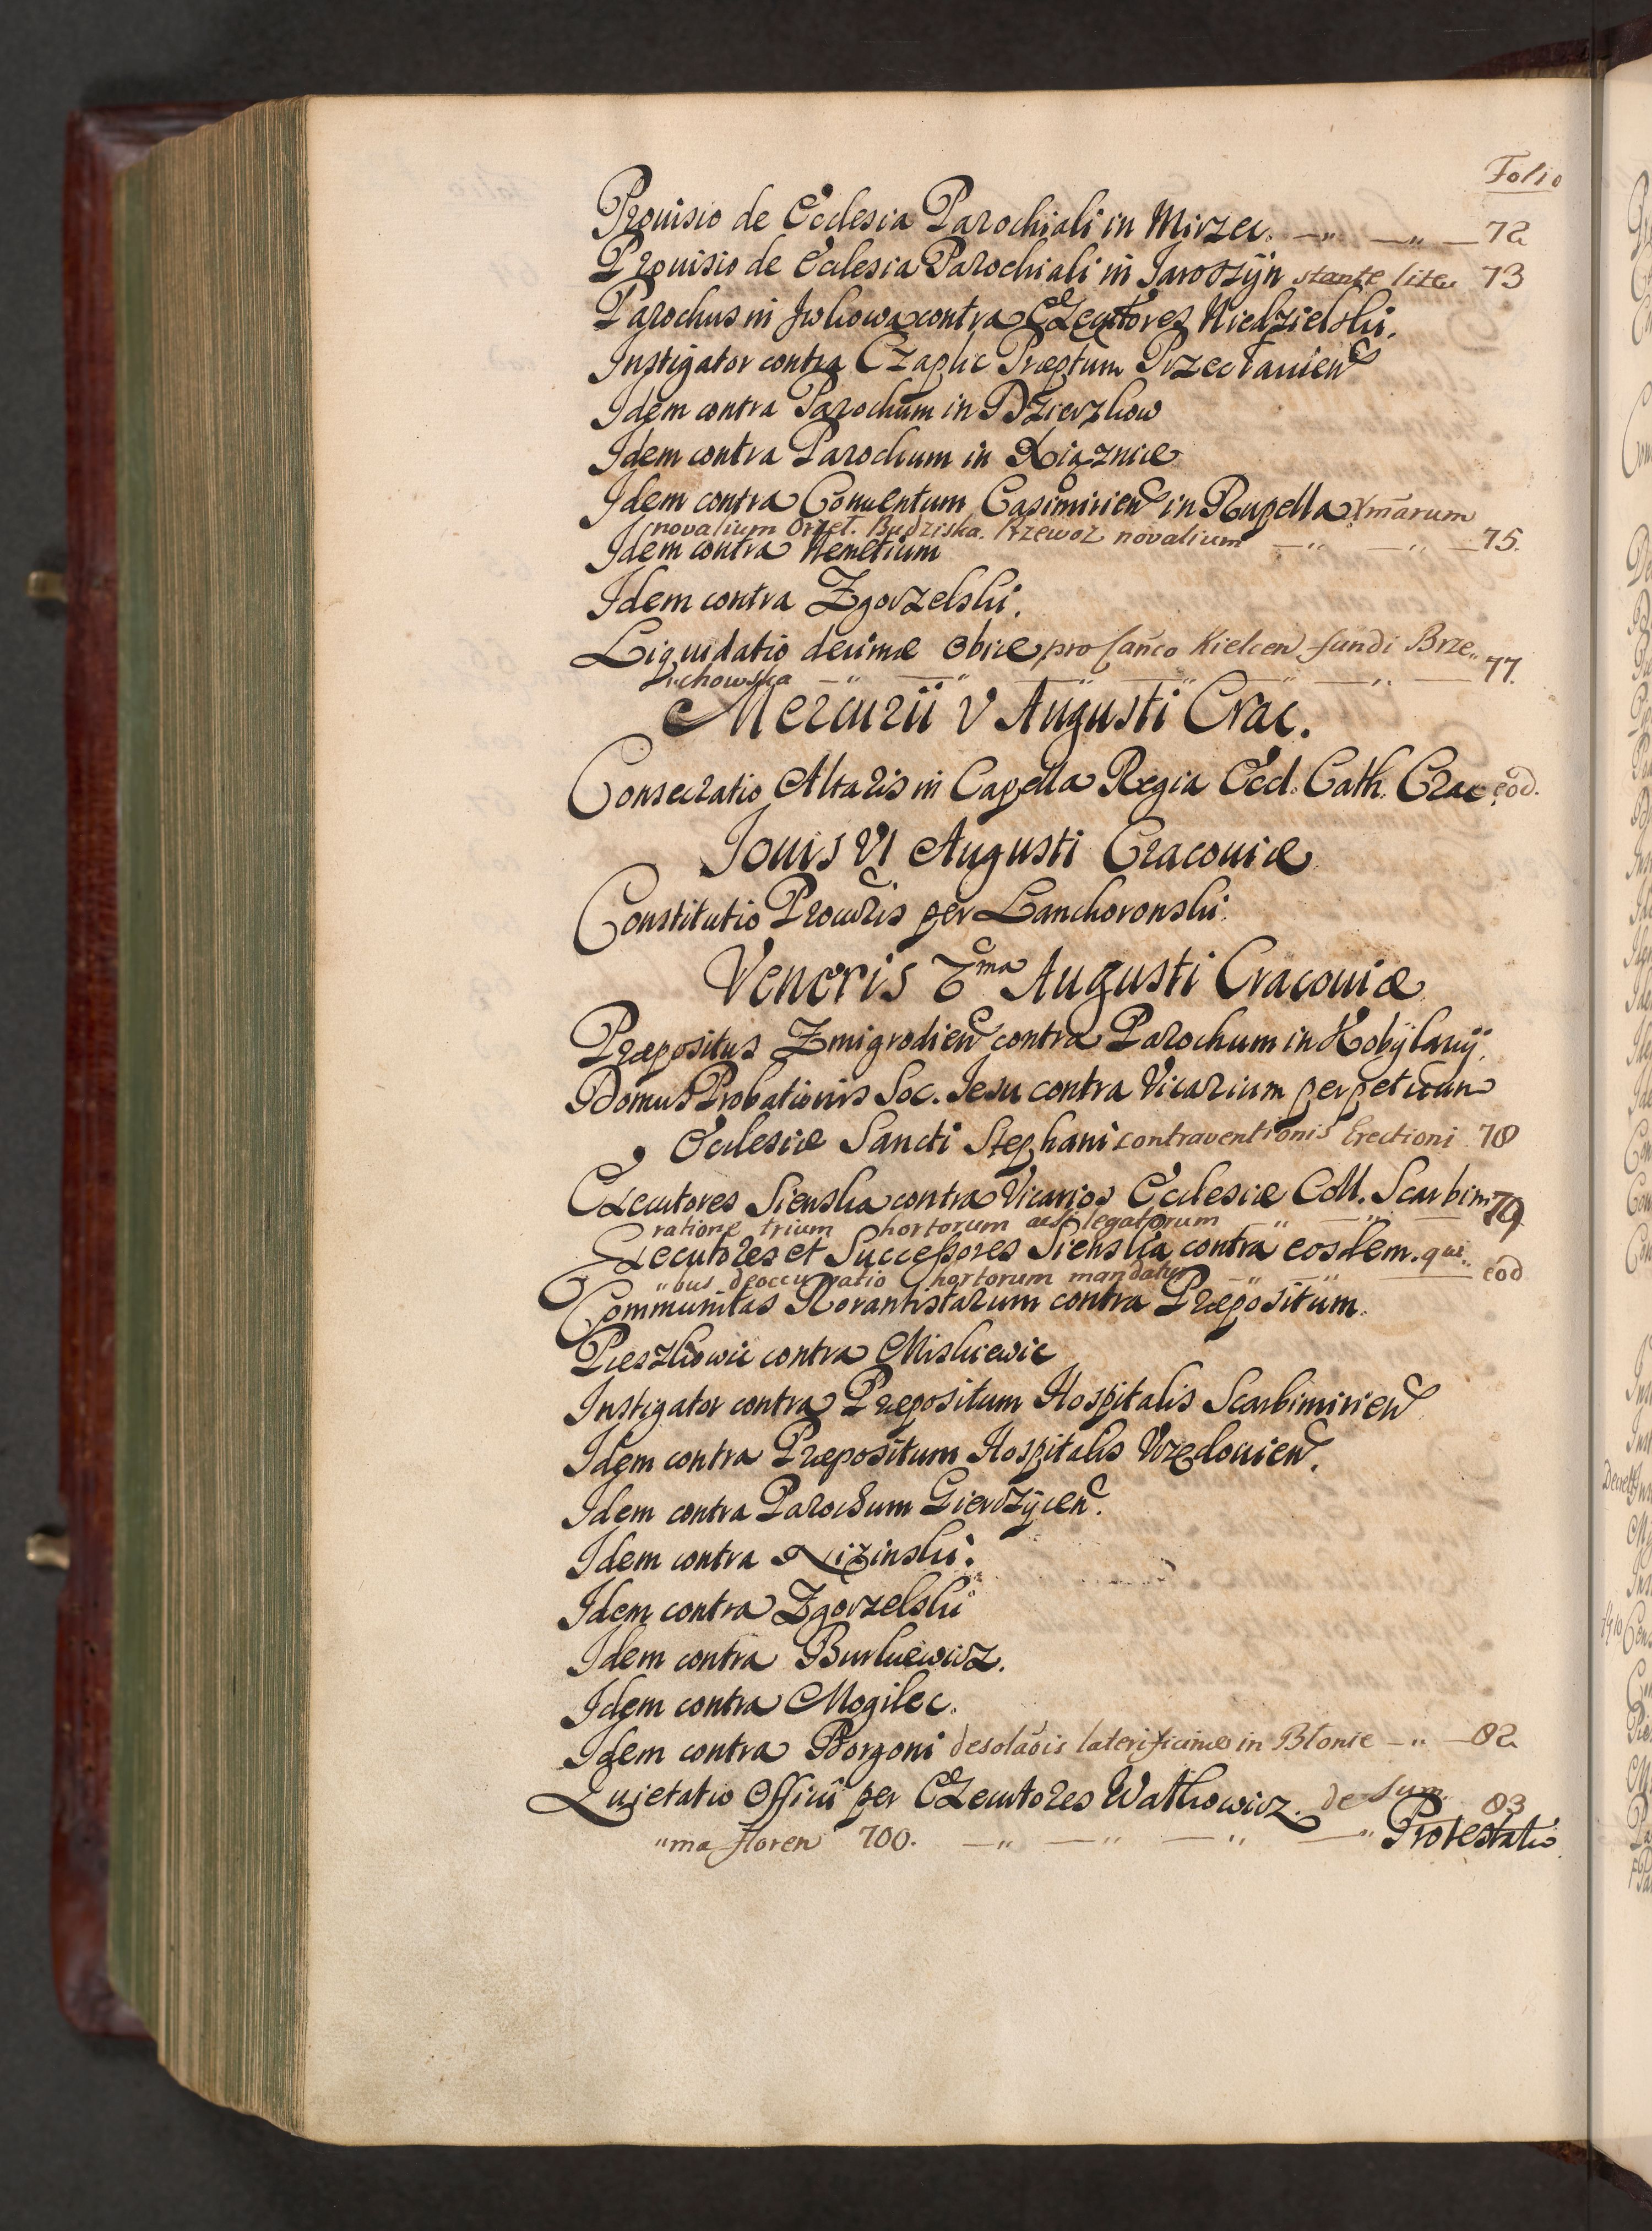 Folio
Prouisio de Ecclesia Parochiali in Mirzec. —„ —„ — 72
Prouisio de Ecclesia Parochiali in Jaroszÿn stante lite 73
Parochus in Iwkowa contra Executores Niedzielski.
Instigator contra Czaplic Præptum Przecławien
Idem contra Parochum in Dzierzkow
Idem contra Parochum in Xiąznice
Idem contra Conuentum Casimirien in Rupella Xmarum
novalium Orzeł. Budziska. Przewoz novalium —„ —„ — 75.
Idem contra Henelium
Idem contra Zgorzelski.
Liquidatio decimæ Obice pro Canco Kielcen fundi Brze„
chowska —„ —„ —„ —„ —„ —„ — 77.
Mercurii V Augusti Crac.
Consecratio Altaris in Capella Regia Eccl. Cath. Crac. eod.
Jouis VI Augusti Cracouiæ
Constitutio Procuris per Lanckoronski.
Veneris 7ma Augusti Cracouiæ
Præpositus Zmigrodien contra Parochum in Kobÿlanÿ.
Domus Probationis Soc. Jesu contra Vicarium perpetuum
Ecclesiæ Sancti Stephani contraventionis Erectioni 78
Executores Sienska contra Vicarios Ecclesiæ Coll. Scarbim 79
ratione trium hortorum legatorum —„ —„ —
Executores et Successores Sienska contra eosdem. qui„
„bus deoccupatio hortorum mandatur —„ —„ — eod
Communitas Rorantistarum contra Præpositum.
Pieszkowic contra Miskiewic
Instigator contra Præpositum Hospitalis Scarbimirien
Idem contra Præpositum Hospitalis Vrzędouien.
Idem contra Parochum Gierczÿcen.
Idem contra Nizinski.
Idem contra Zgorzelski
Idem contra Burkiewicz.
Idem contra Mogilec.
Idem contra Borgoni desolaois laterificinæ in Błonie —„ — 82
Quietatio Officii per Executores Watkowicz. de Sum 83
„ma floren 700. —„ —„ —„ —„ Protestatio